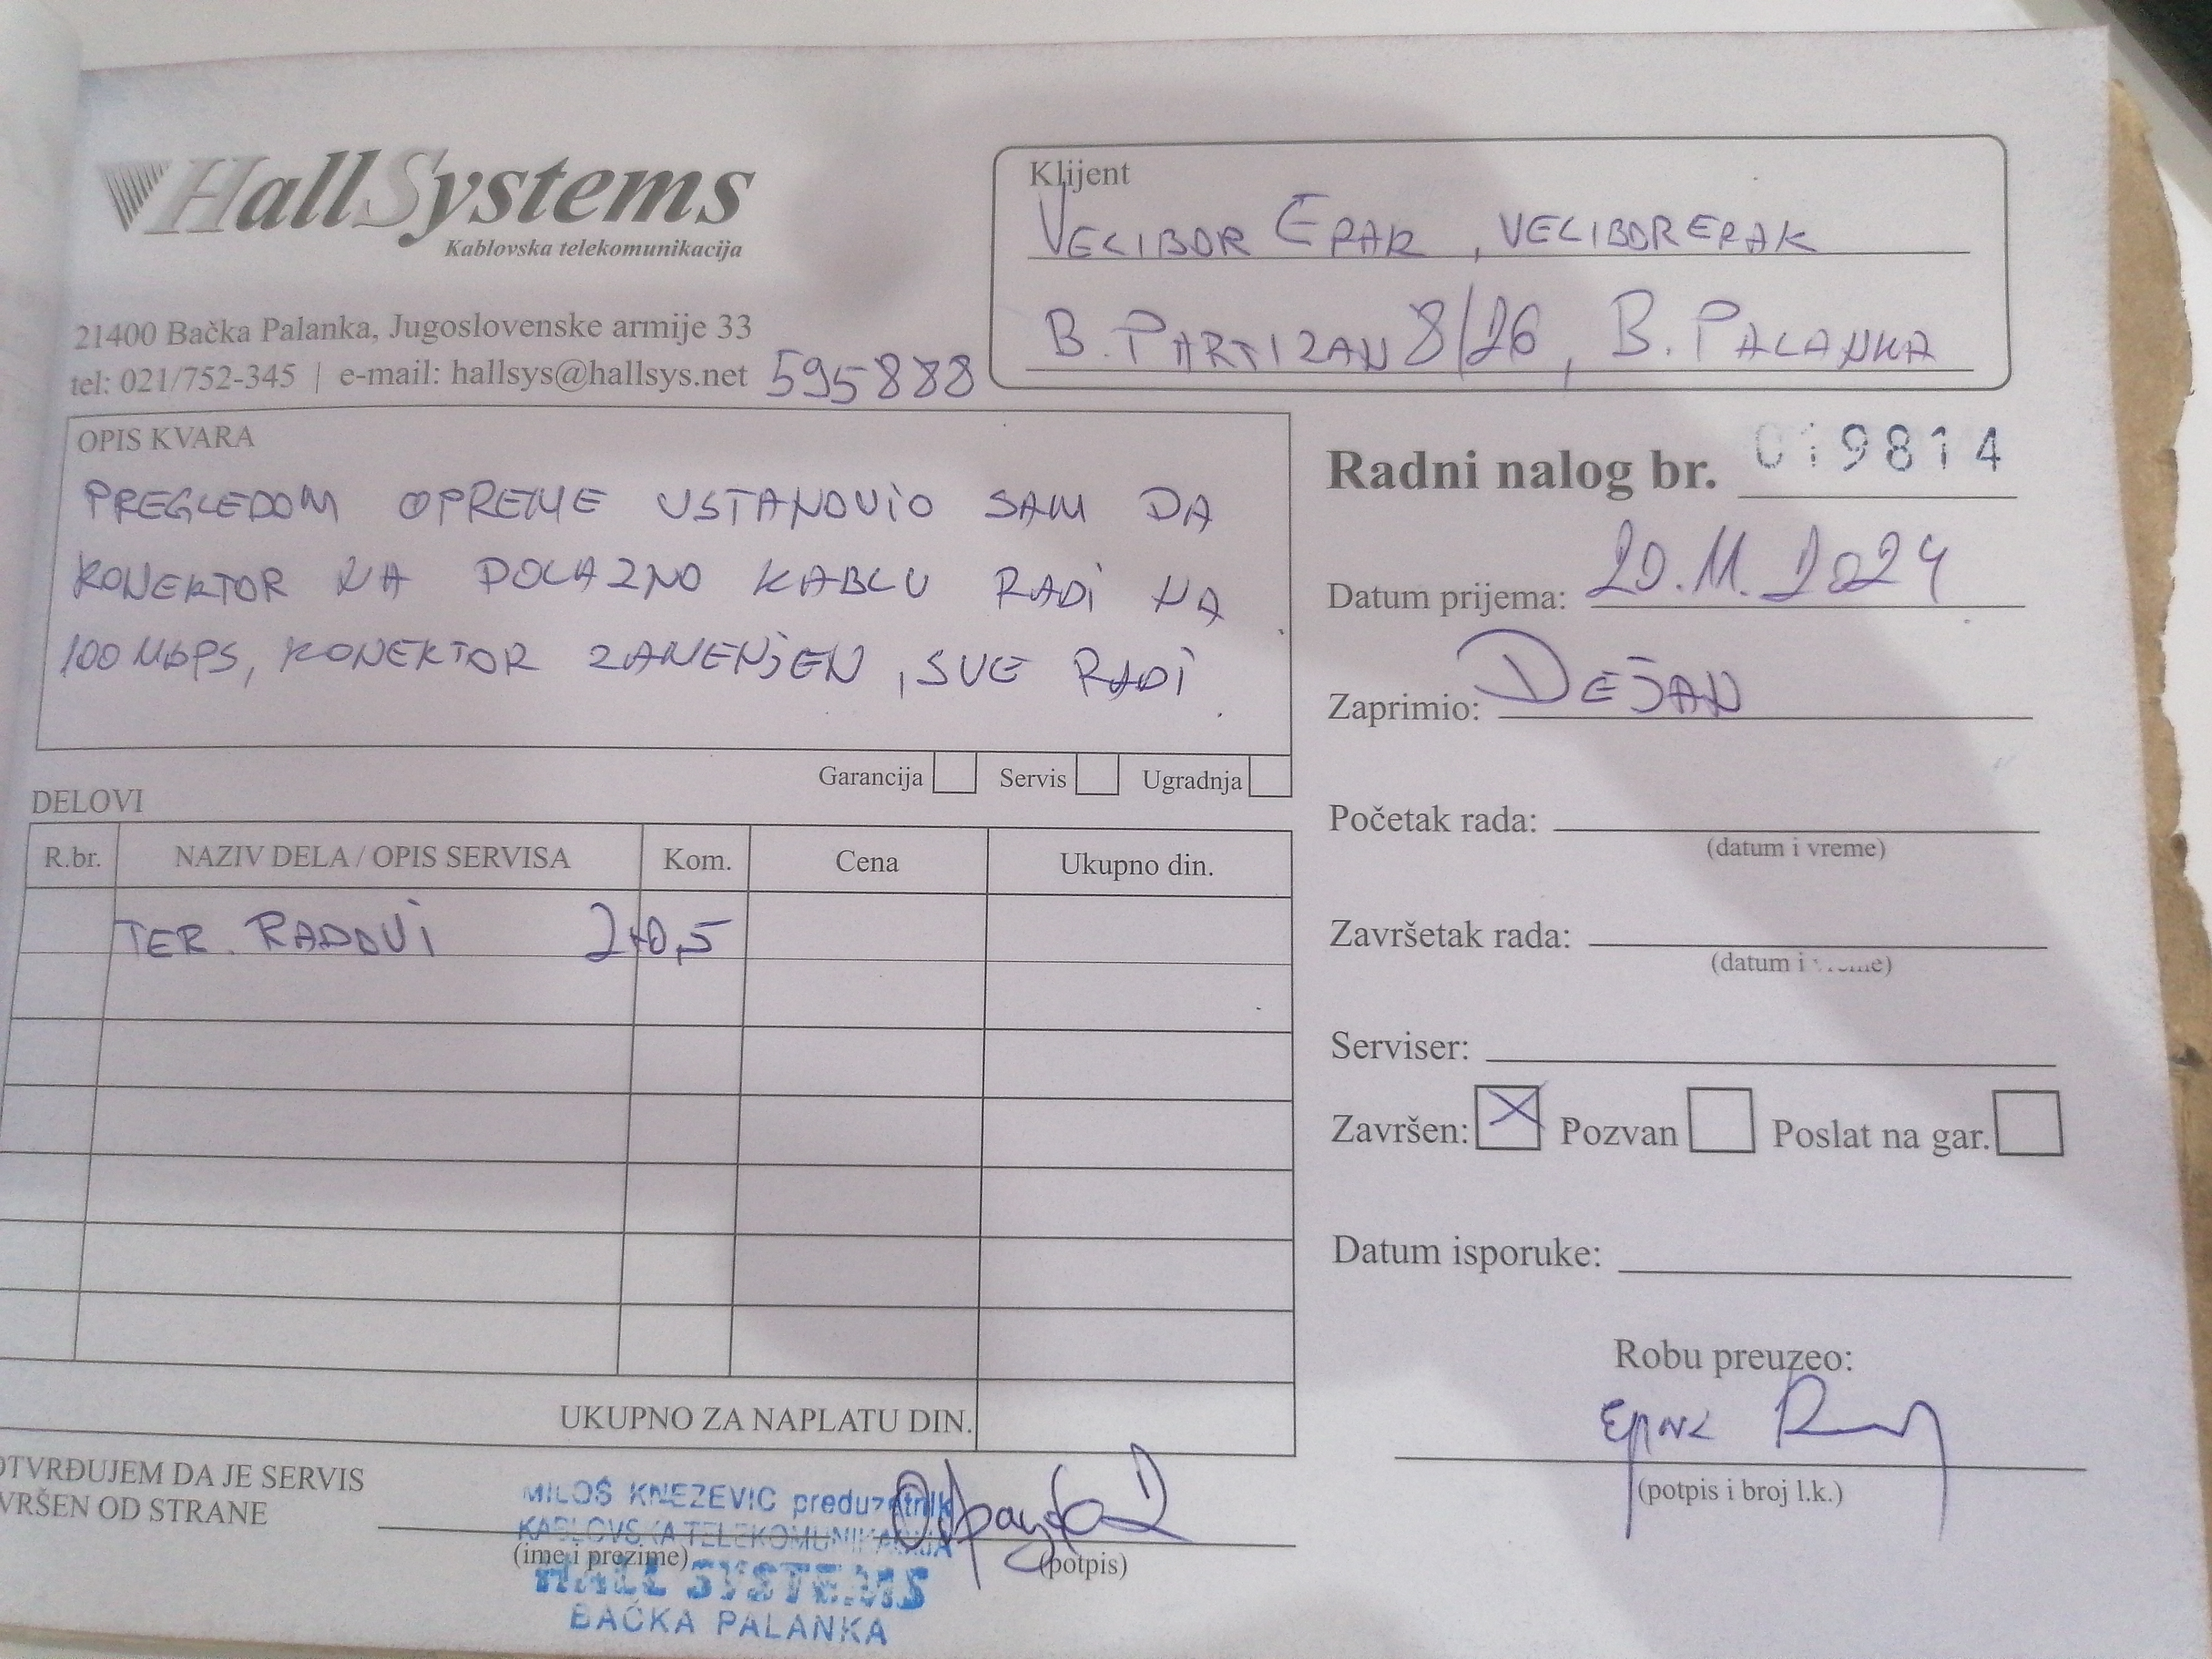 HallSystems
Kablovska telekomunikacija
21400 Bačka Palanka, Jugoslovenske armije 33
tel: 021/752-345 | e-mail: hallsys@hallsys.net 595888
Klijent
VELIBOR ERAK, VELIBORERAK
B. PARTIZAN 8/26, B. PALANKA
OPIS KVARA
PREGLEDOM OPREME USTANOVIO SAM DA
KONEKTOR NA POLAZNO KABLU RADI NA
100 Mbps, KONEKTOR ZAMENJEN, SVE RADI.
Garancija Servis Ugradnja
Radni nalog br. 019814
Datum prijema: 20.11.2024
Zaprimio: DEJAN
Početak rada:
(datum i vreme)
Završetak rada:
(datum i vreme)
Serviser:
Završen: X Pozvan Poslat na gar.
Datum isporuke:
Robu preuzeo:
(potpis i broj l.k.)
DELOVI
R.br. NAZIV DELA / OPIS SERVISA Kom. Cena Ukupno din.
TER. RADOVI 2+0,5
UKUPNO ZA NAPLATU DIN.
OTVRĐUJEM DA JE SERVIS
VRŠEN OD STRANE
(ime i prezime) (potpis)
MILOŠ KNEZEVIC preduzetnik
KABLOVSKA TELEKOMUNIKACIJA
HALL SYSTEMS
BAČKA PALANKA